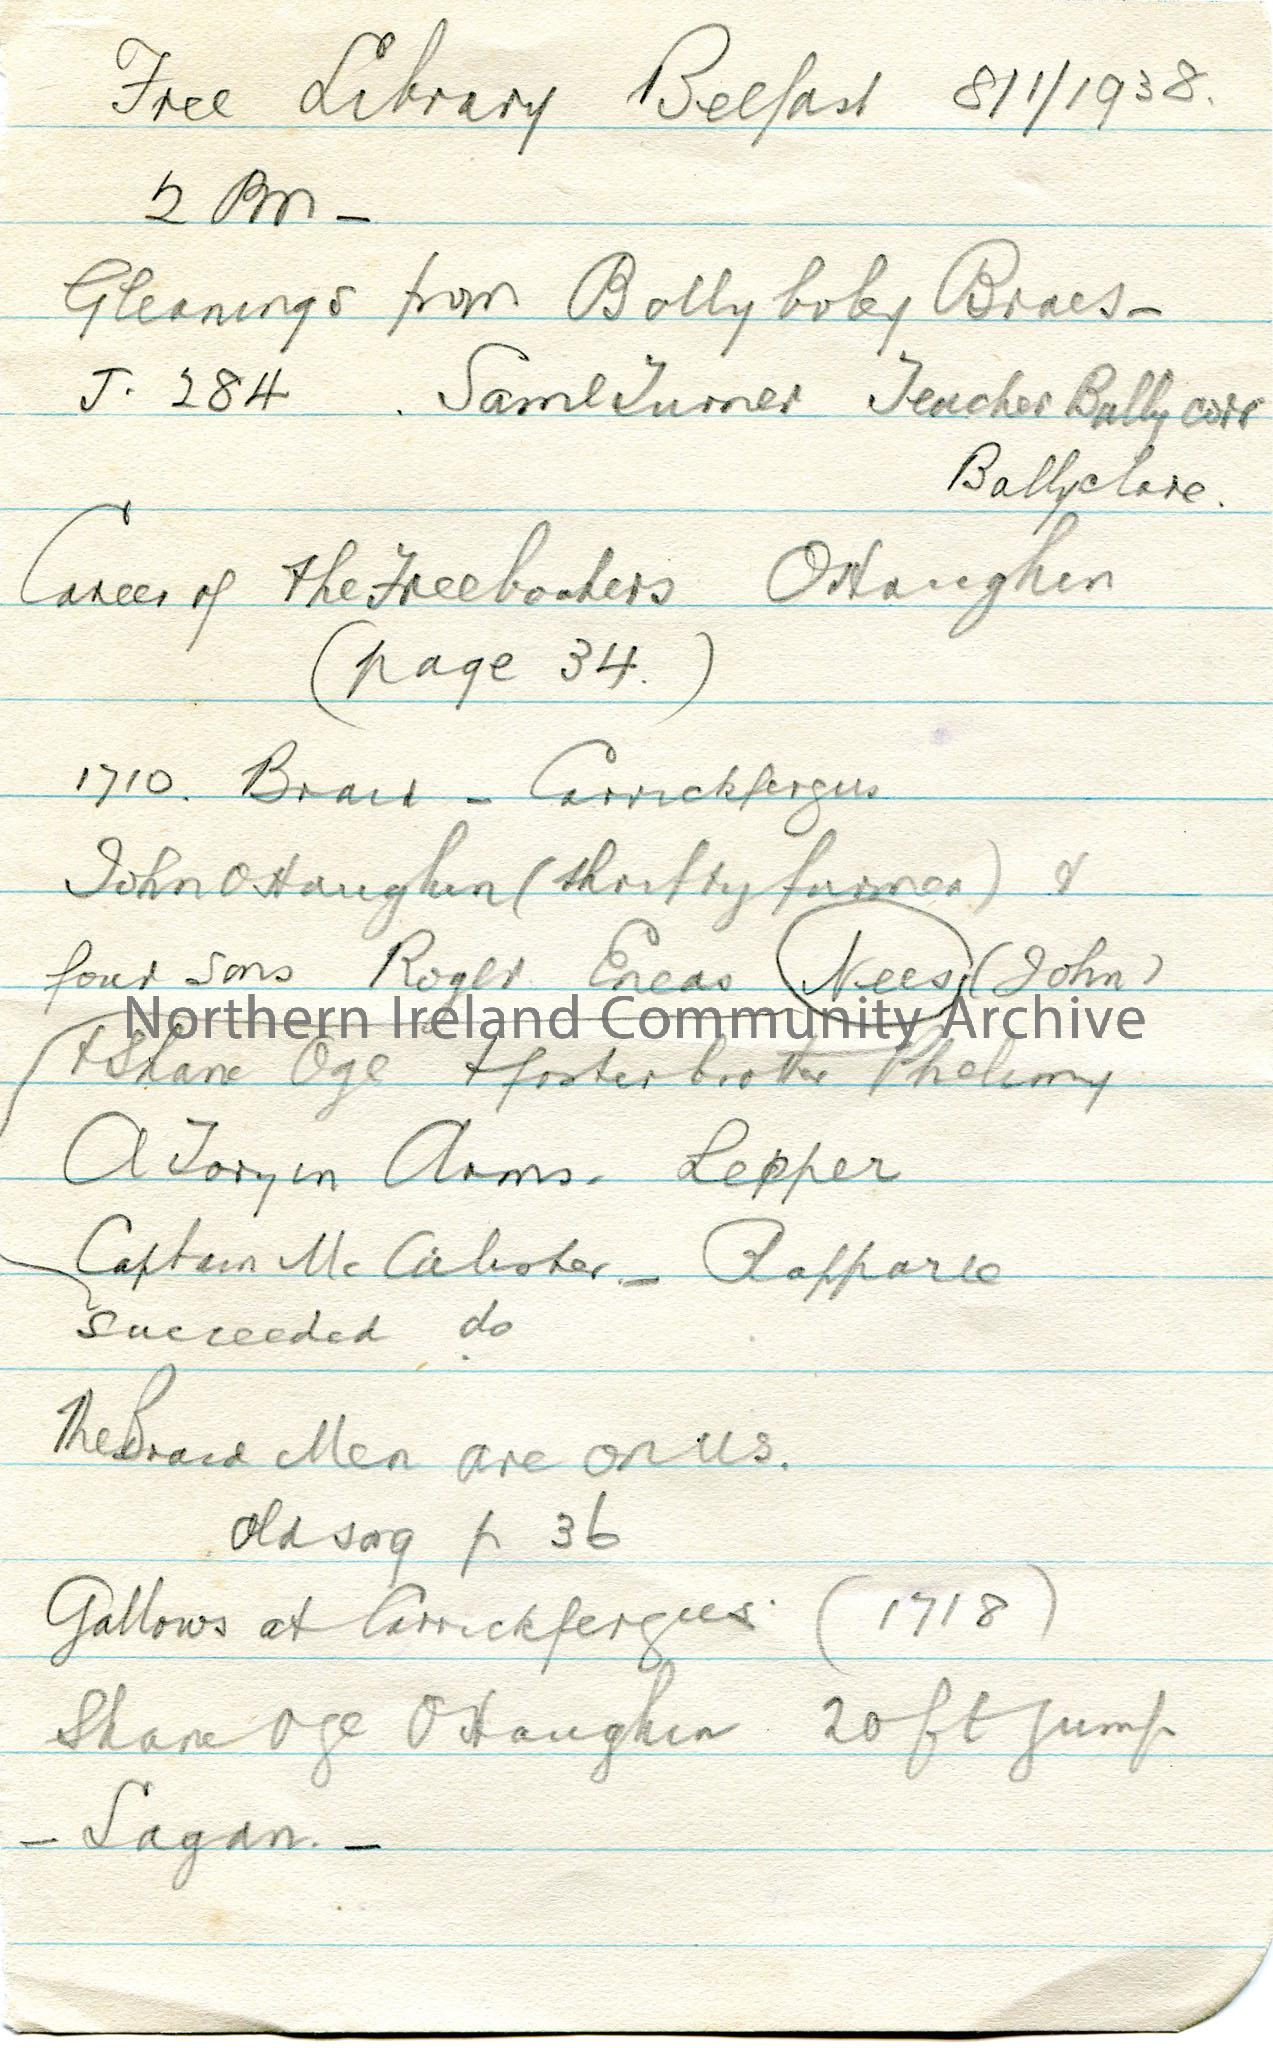 Free Library Belfast 8/1/1938.
2 Pm –
Gleanings from Ballyboley Braes –
J. 284 . Saml Turner Teacher Ballycorr
Ballyclare.
Career of the Freebooters O'Haughen
(page 34.)
1710. Braid – Carrickfergus
John O Haughen (thrifty farmer) &
four sons Roger Eneas Nees (John)
Northern Ireland Community Archive
+ Shane Oge + foster brother Phelimy
A Tory in Arms. Lepper
Captain Mc Alister. – Rapparee
succeeded do
The Braid Men are on us.
old song p 36
Gallows at Carrickfergus. (1718)
Shane Oge O Haughen 20 ft jump
– Lagan. –